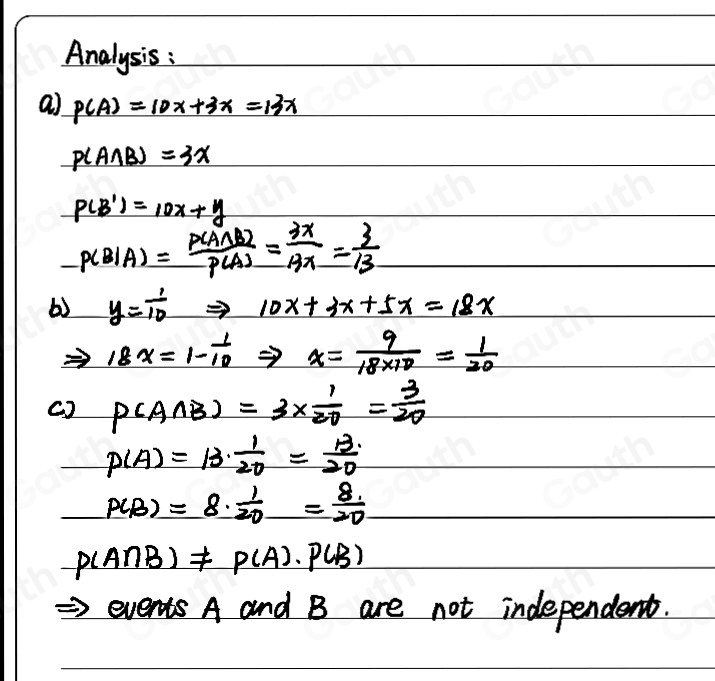 Analysis:
a) P(A) = 10x+3x = 13x
P(A∩B) = 3x
P(B') = 10x+y
P(B|A) = P(A∩B)/P(A) = 3x/13x = 3/13
b) y=1/10 ⇒ 10x+3x+5x = 18x
⇒ 18x = 1-1/10 ⇒ x = 9/(18×10) = 1/20
c) P(A∩B) = 3×1/20 = 3/20
P(A) = 13·1/20 = 13/20
P(B) = 8·1/20 = 8/20
P(A∩B) ≠ P(A).P(B)
⇒ events A and B are not independent.